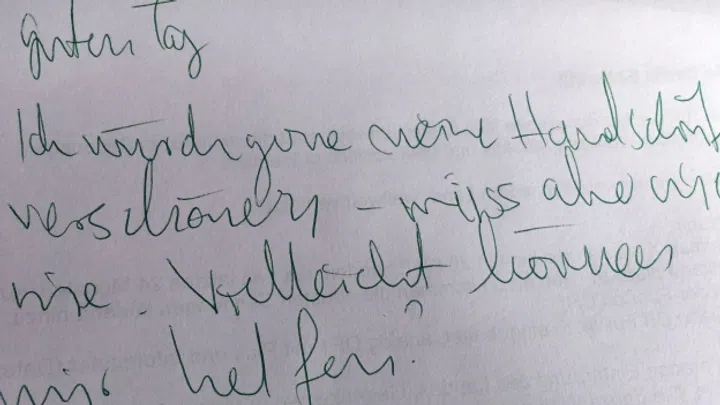 guten Tag
Ich würde gerne meine Handschrift
verschönern - weiss aber nicht
wie Vielleicht können
mir helfen?